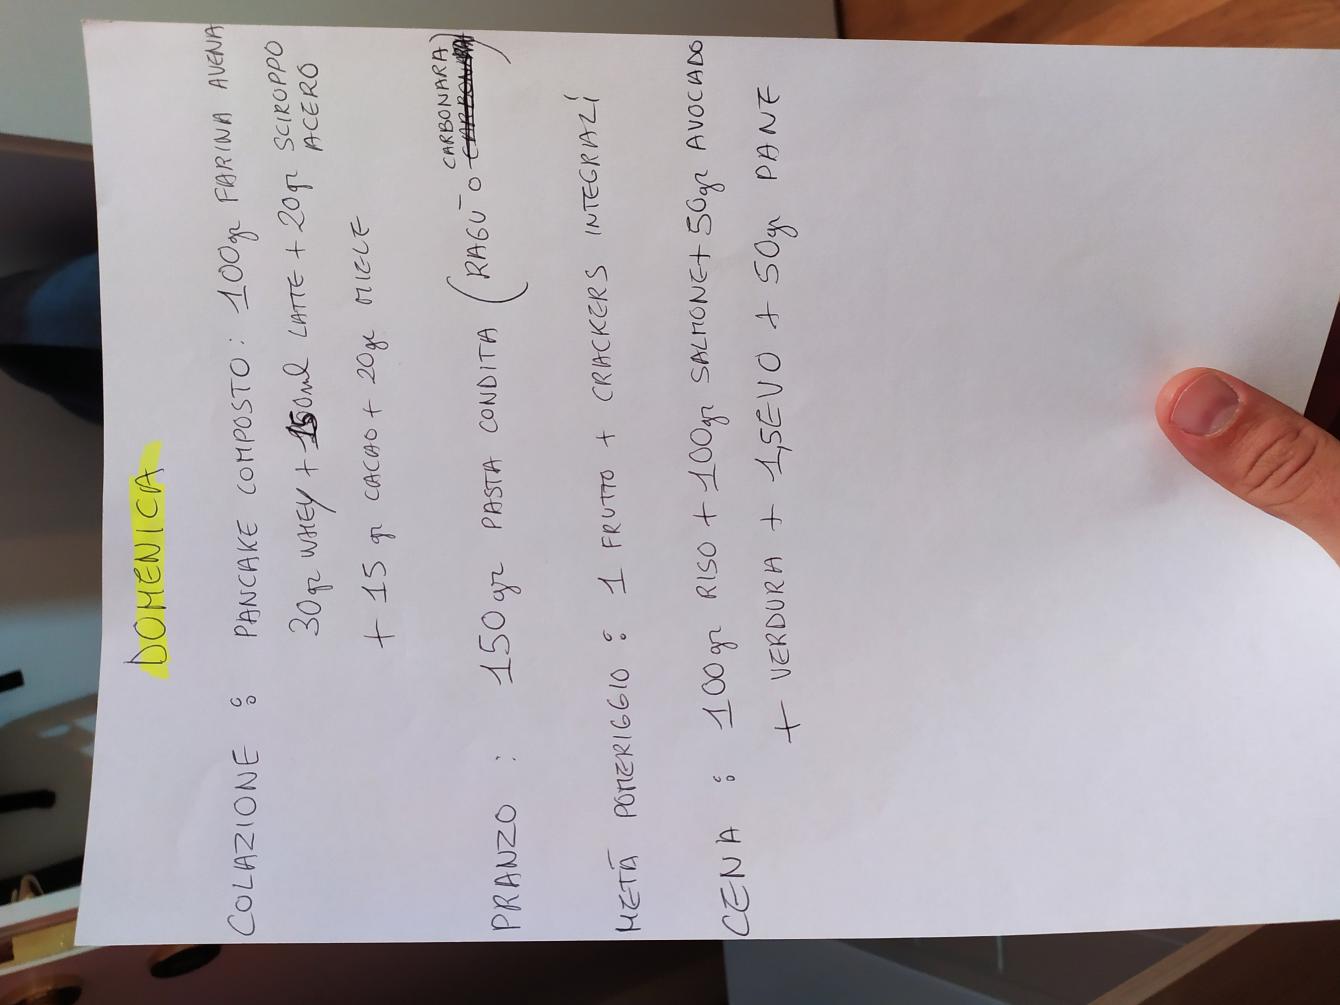 DOMENICA
COLAZIONE : PANCAKE COMPOSTO: 100gr FARINA AVENA
30gr WHEY + 150ml LATTE + 20gr SCIROPPO
ACERO
+ 15 gr CACAO + 20gr MIELE
CARBONARA)
PRANZO : 150gr PASTA CONDITA (RAGÙ o CARBONARA
METÀ POMERIGGIO : 1 FRUTTO + CRACKERS INTEGRALÍ
CENA : 100gr RISO + 100gr SALMONE + 50gr AVOCADO
+ VERDURA + 1,5EVO + 50gr PANE